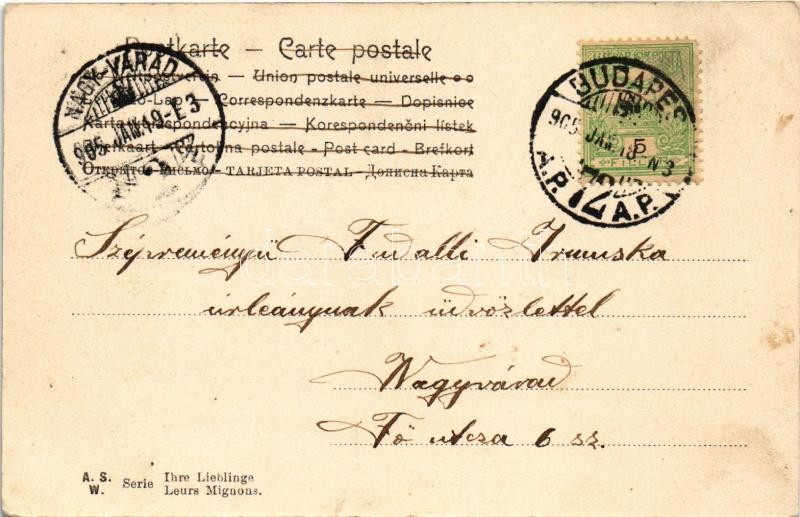 Postkarte — Carte postale
Weltpostverein — Union postale universelle
Levelező-Lap — Correspondenzkarte — Dopisnice
Karta korespondencyjna — Korespondenční lístek
Briefkaart — Cartolina postale — Post card — Brefkort
Открытое письмо — TARJETA POSTAL — Дописна Карта
NAGY-VÁRAD
905 JAN. 19-E 3
BUDAPEST
905 JAN. 18 N 3
5
72
A.P. A.P.
Szépreményü Fudalli Irmuska
úrleánynak üdvözlettel
Nagyvárad
Fő utcza 6 sz.
A. S. W. Serie Ihre Lieblinge
Leurs Mignons.
darabanth